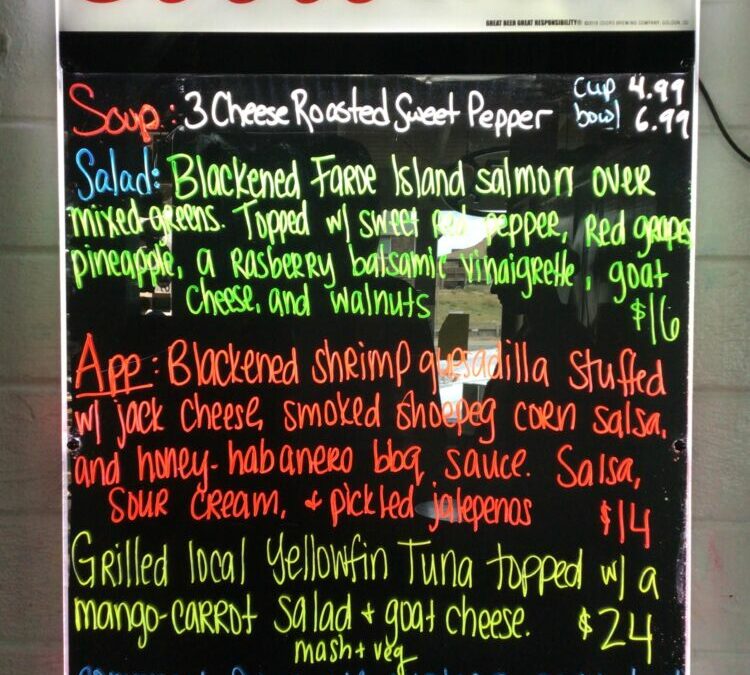 GREAT BEER GREAT RESPONSIBILITY® ©2019 COORS BREWING COMPANY, GOLDEN, CO
Soup: 3 Cheese Roasted Sweet Pepper cup 4.99
bowl 6.99
Salad: Blackened Faroe Island salmon over
mixed greens. Topped w/ sweet red pepper, Red grapes
pineapple, a Rasberry balsamic vinaigrette, goat
cheese, and walnuts $16
App: Blackened shrimp quesadilla stuffed
w/ jack cheese, smoked shoepeg corn salsa,
and honey-habanero bbq sauce. Salsa,
sour cream, + pickled jalepenos $14
Grilled local Yellowfin Tuna topped w/ a
mango-carrot salad + goat cheese. $24
mash + veg